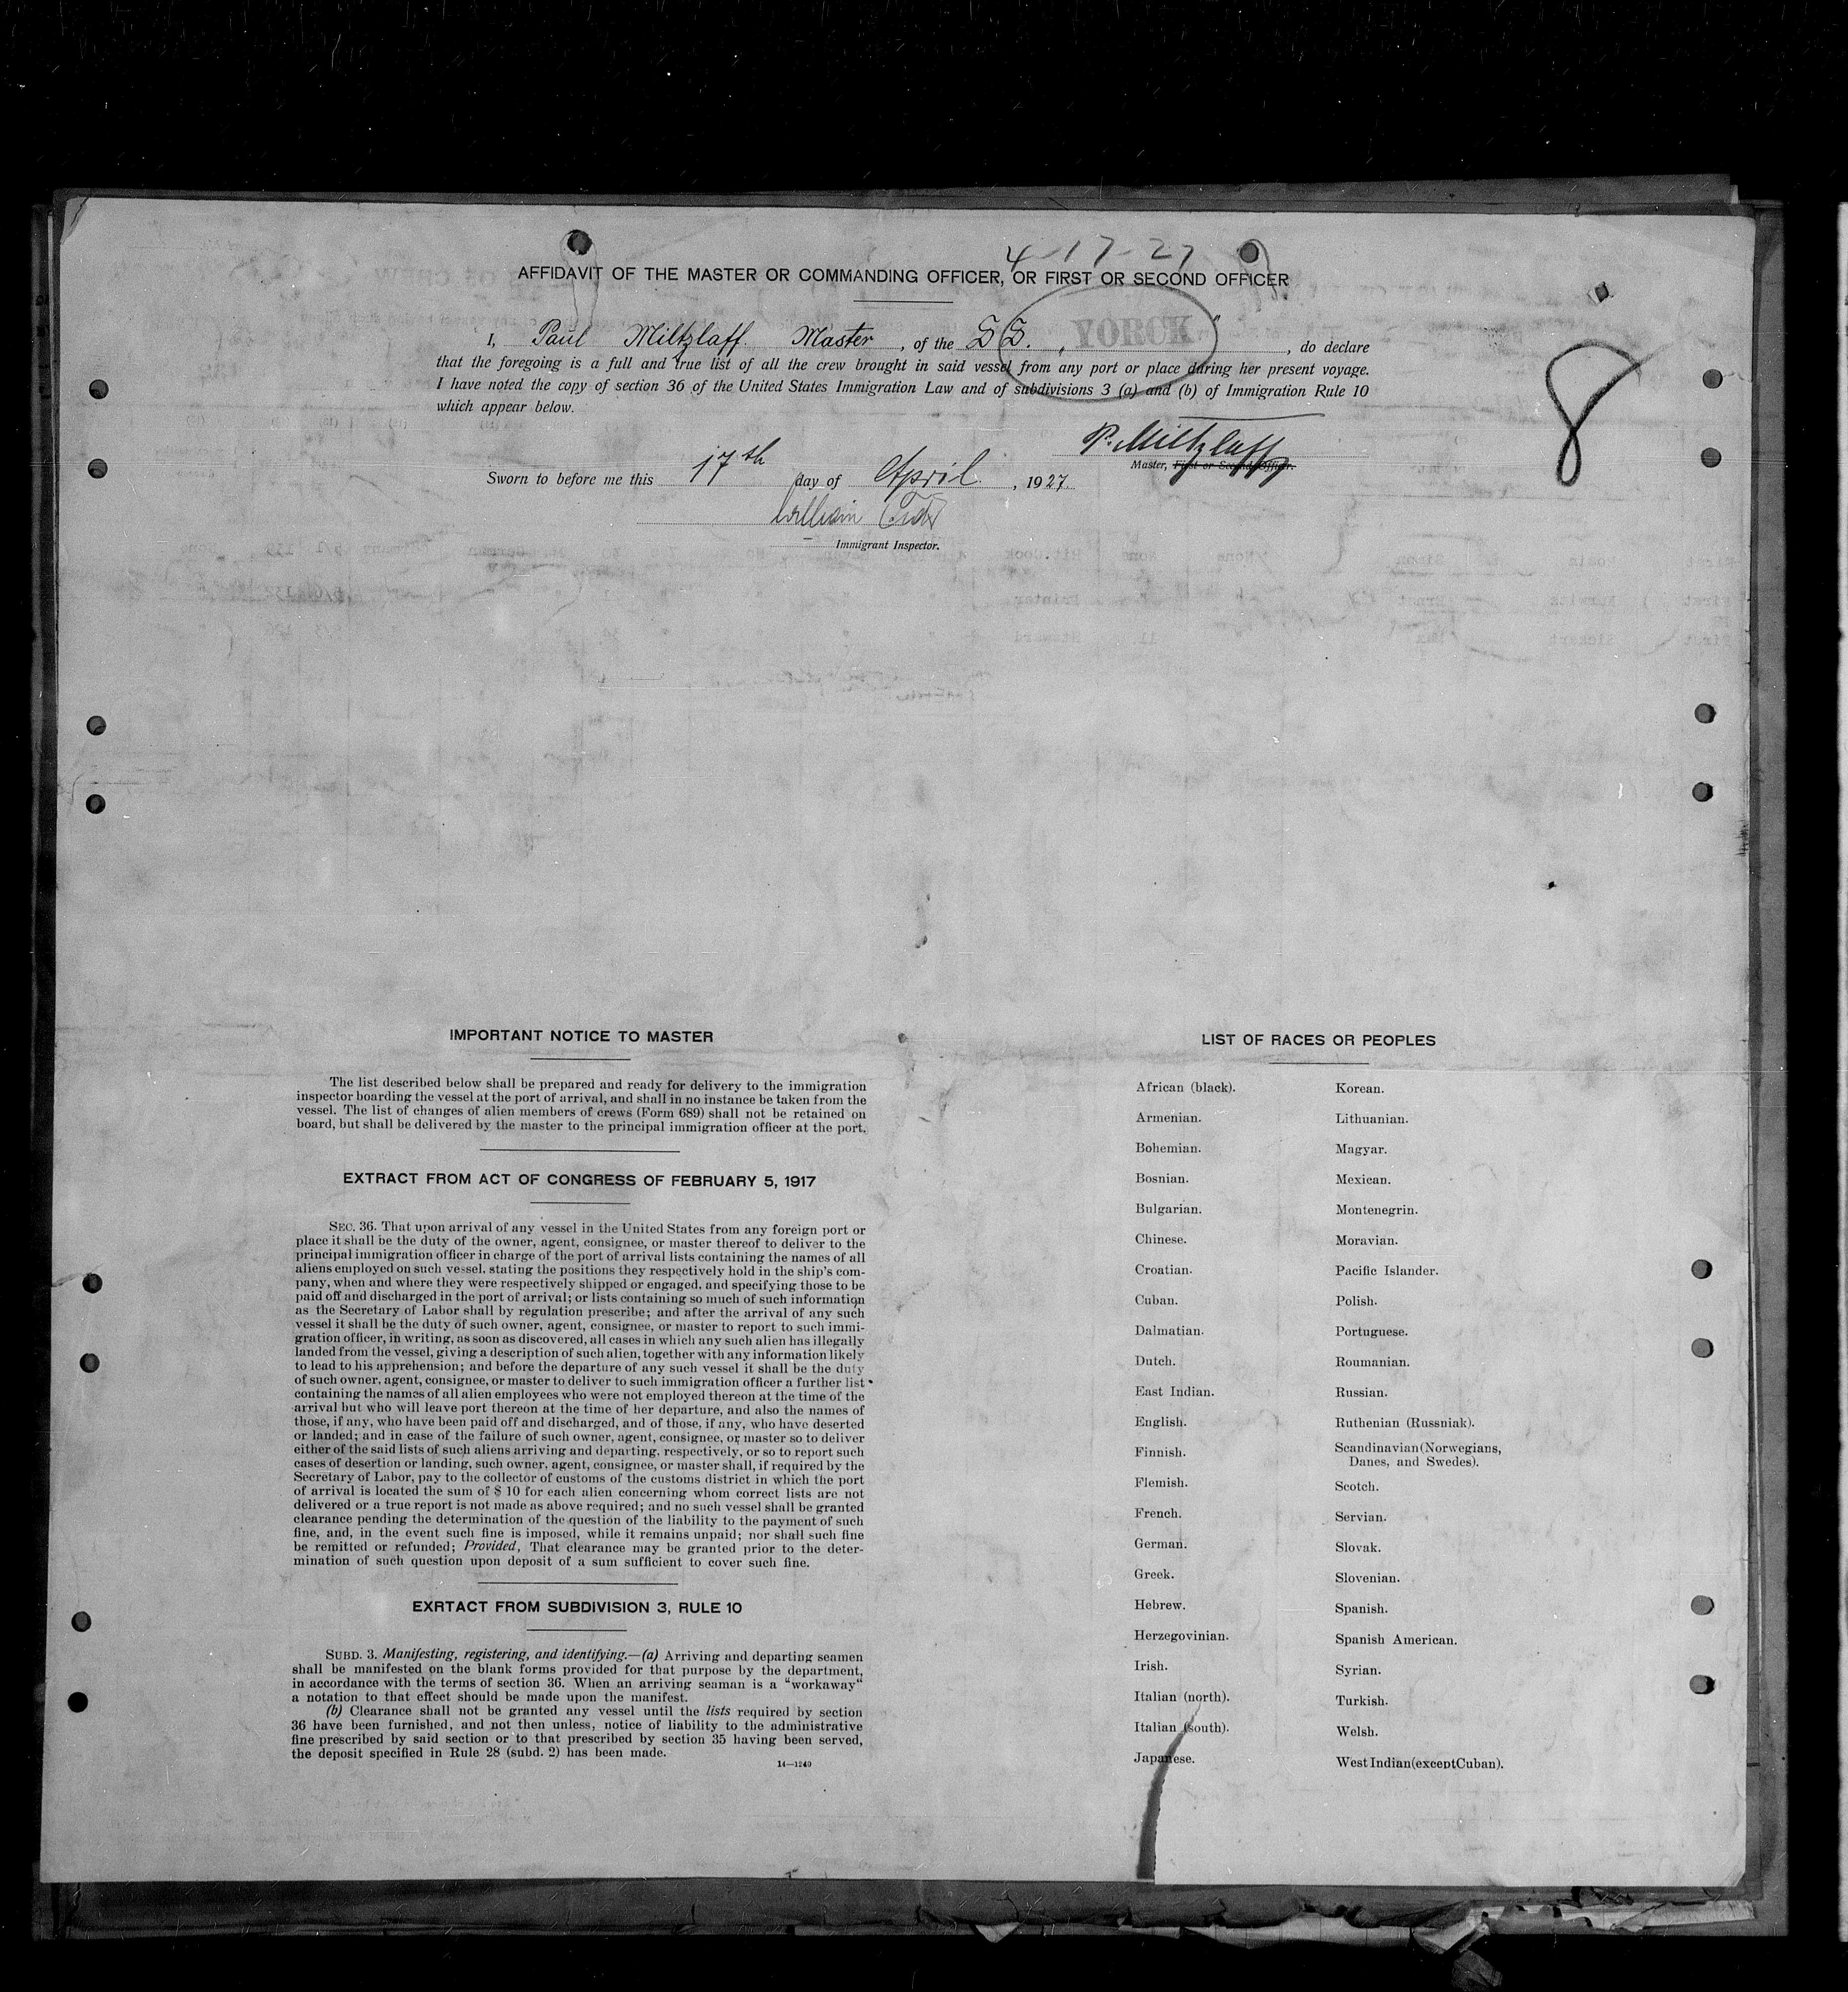 4-17-27
AFFIDAVIT OF THE MASTER OR COMMANDING OFFICER, OR FIRST OR SECOND OFFICER
I, Paul Miltzlaff Master, of the SS. „YORCK", do declare
that the foregoing is a full and true list of all the crew brought in said vessel from any port or place during her present voyage.
I have noted the copy of section 36 of the United States Immigration Law and of subdivisions 3 (a) and (b) of Immigration Rule 10
which appear below.
8
P. Miltzlaff
Master, First or Second Officer.
Sworn to before me this 17th day of April, 1927.
William
Immigrant Inspector.
IMPORTANT NOTICE TO MASTER
The list described below shall be prepared and ready for delivery to the immigration
inspector boarding the vessel at the port of arrival, and shall in no instance be taken from the
vessel. The list of changes of alien members of crews (Form 689) shall not be retained on
board, but shall be delivered by the master to the principal immigration officer at the port.
EXTRACT FROM ACT OF CONGRESS OF FEBRUARY 5, 1917
SEC. 36. That upon arrival of any vessel in the United States from any foreign port or
place it shall be the duty of the owner, agent, consignee, or master thereof to deliver to the
principal immigration officer in charge of the port of arrival lists containing the names of all
aliens employed on such vessel, stating the positions they respectively hold in the ship's com-
pany, when and where they were respectively shipped or engaged, and specifying those to be
paid off and discharged in the port of arrival; or lists containing so much of such information
as the Secretary of Labor shall by regulation prescribe; and after the arrival of any such
vessel it shall be the duty of such owner, agent, consignee, or master to report to such immi-
gration officer, in writing, as soon as discovered, all cases in which any such alien has illegally
landed from the vessel, giving a description of such alien, together with any information likely
to lead to his apprehension; and before the departure of any such vessel it shall be the duty
of such owner, agent, consignee, or master to deliver to such immigration officer a further list
containing the names of all alien employees who were not employed thereon at the time of the
arrival but who will leave port thereon at the time of her departure, and also the names of
those, if any, who have been paid off and discharged, and of those, if any, who have deserted
or landed; and in case of the failure of such owner, agent, consignee, or master so to deliver
either of the said lists of such aliens arriving and departing, respectively, or so to report such
cases of desertion or landing, such owner, agent, consignee, or master shall, if required by the
Secretary of Labor, pay to the collector of customs of the customs district in which the port
of arrival is located the sum of $ 10 for each alien concerning whom correct lists are not
delivered or a true report is not made as above required; and no such vessel shall be granted
clearance pending the determination of the question of the liability to the payment of such
fine, and, in the event such fine is imposed, while it remains unpaid; nor shall such fine
be remitted or refunded; Provided, That clearance may be granted prior to the deter-
mination of such question upon deposit of a sum sufficient to cover such fine.
EXRTACT FROM SUBDIVISION 3, RULE 10
SUBD. 3. Manifesting, registering, and identifying.—(a) Arriving and departing seamen
shall be manifested on the blank forms provided for that purpose by the department,
in accordance with the terms of section 36. When an arriving seaman is a "workaway"
a notation to that effect should be made upon the manifest.
(b) Clearance shall not be granted any vessel until the lists required by section
36 have been furnished, and not then unless, notice of liability to the administrative
fine prescribed by said section or to that prescribed by section 35 having been served,
the deposit specified in Rule 28 (subd. 2) has been made.
14—1240
LIST OF RACES OR PEOPLES
African (black).
Armenian.
Bohemian.
Bosnian.
Bulgarian.
Chinese.
Croatian.
Cuban.
Dalmatian.
Dutch.
East Indian.
English.
Finnish.
Flemish.
French.
German.
Greek.
Hebrew.
Herzegovinian.
Irish.
Italian (north).
Italian (south).
Japanese.
Korean.
Lithuanian.
Magyar.
Mexican.
Montenegrin.
Moravian.
Pacific Islander.
Polish.
Portuguese.
Roumanian.
Russian.
Ruthenian (Russniak).
Scandinavian (Norwegians,
Danes, and Swedes).
Scotch.
Servian.
Slovak.
Slovenian.
Spanish.
Spanish American.
Syrian.
Turkish.
Welsh.
West Indian (except Cuban).